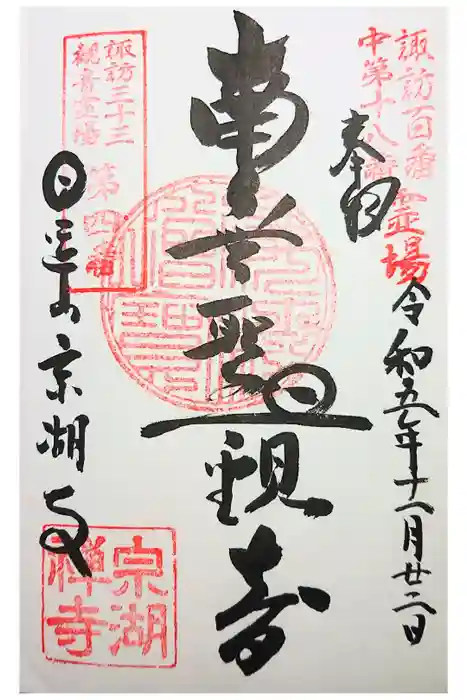 諏訪百番
中第十八番
霊場
奉拝
令和五年十一月廿二日
南無聖観音
諏訪三十三
観音霊場
第四番
山宗湖寺
宗湖
禅寺